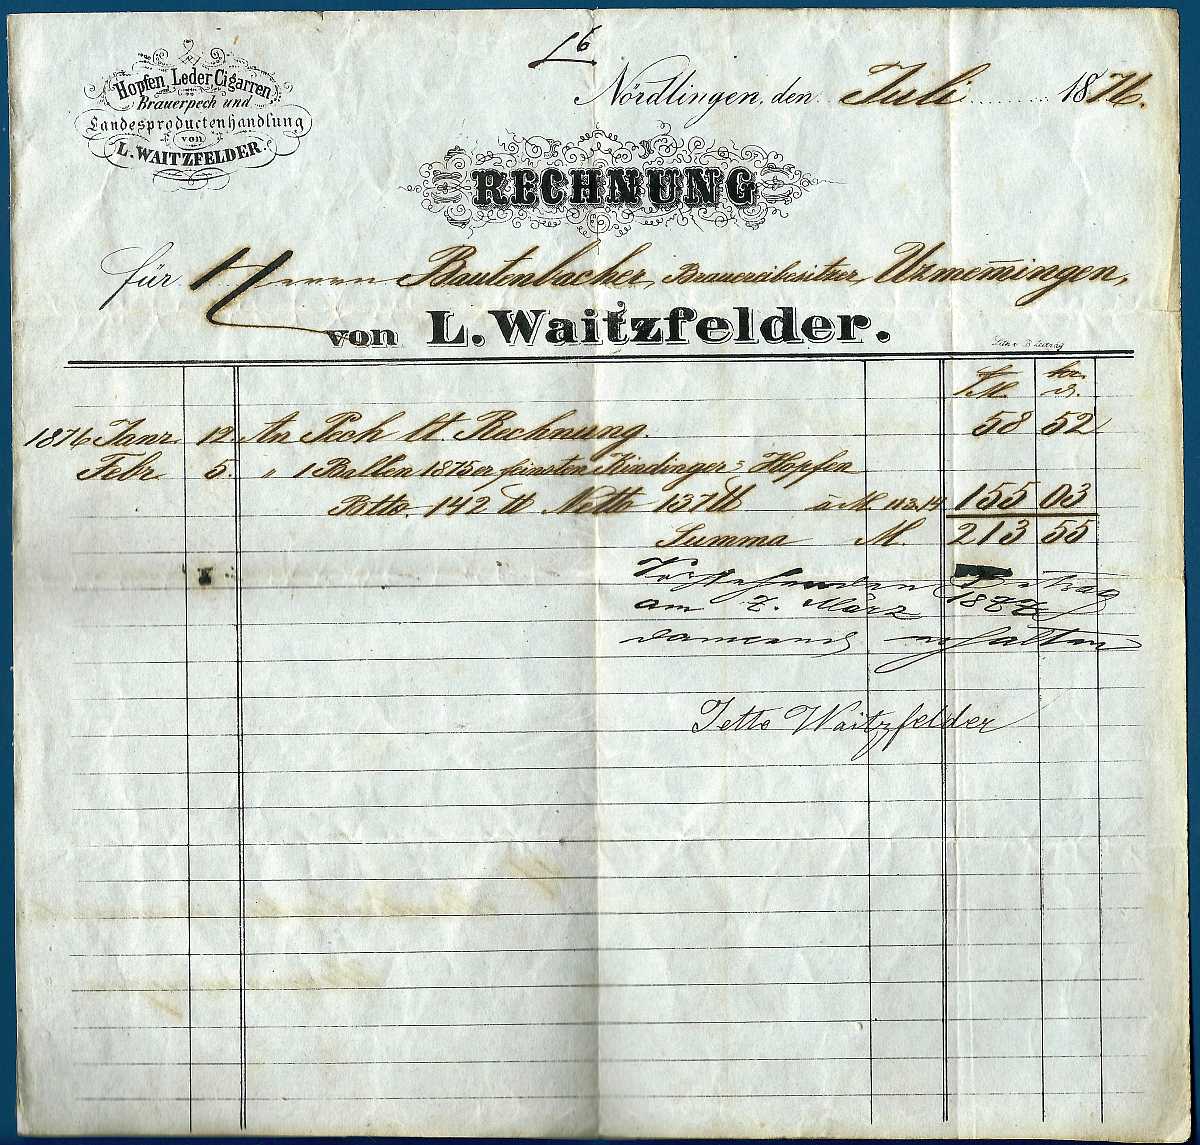 L 6
Hopfen, Leder, Cigarren,
Brauerpech und
Landesproductenhandlung
von
L. WAITZFELDER.
Nördlingen, den Juli 1876.
RECHNUNG
für Herrn Bautenbacher, Brauereibesitzer, Utzmemingen,
von L. Waitzfelder.
M.
1876 Janr. 12. An Pech lt. Rechnung. 58 52
Febr. 5. " 1 Ballen 1875er feinsten Kindinger Hopfen
Btto. 142 ℔ Netto 137 ℔ à M. 113.14 155 03
Summa M. 213 55
Vorstehenden Betrag
am 7. März 1877
dankend erhalten
Jette Waitzfelder